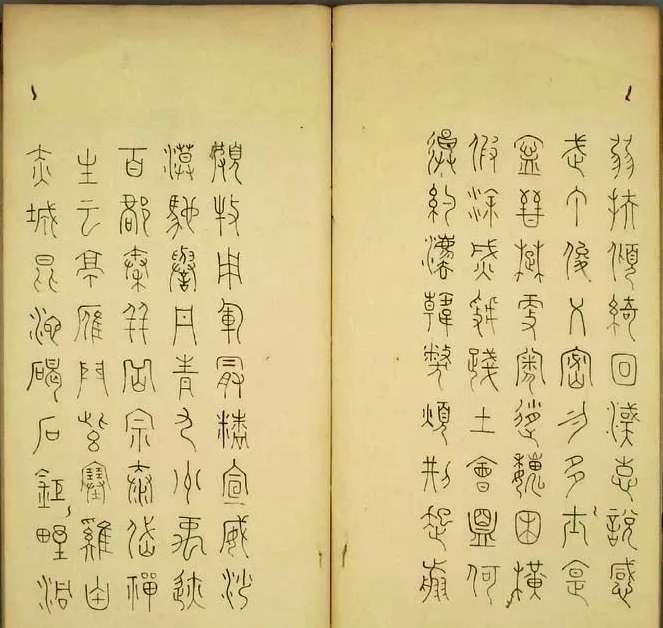 弱扶傾綺回漢惠說感
武丁俊乂密勿多士寔
寧晉楚更霸趙魏困橫
假途滅虢踐土會盟何
遵約法韓弊煩刑起翦
頗牧用軍最精宣威沙
漠馳譽丹青九州禹跡
百郡秦并嶽宗泰岱禪
主云亭雁門紫塞雞田
赤城昆池碣石鉅野洞